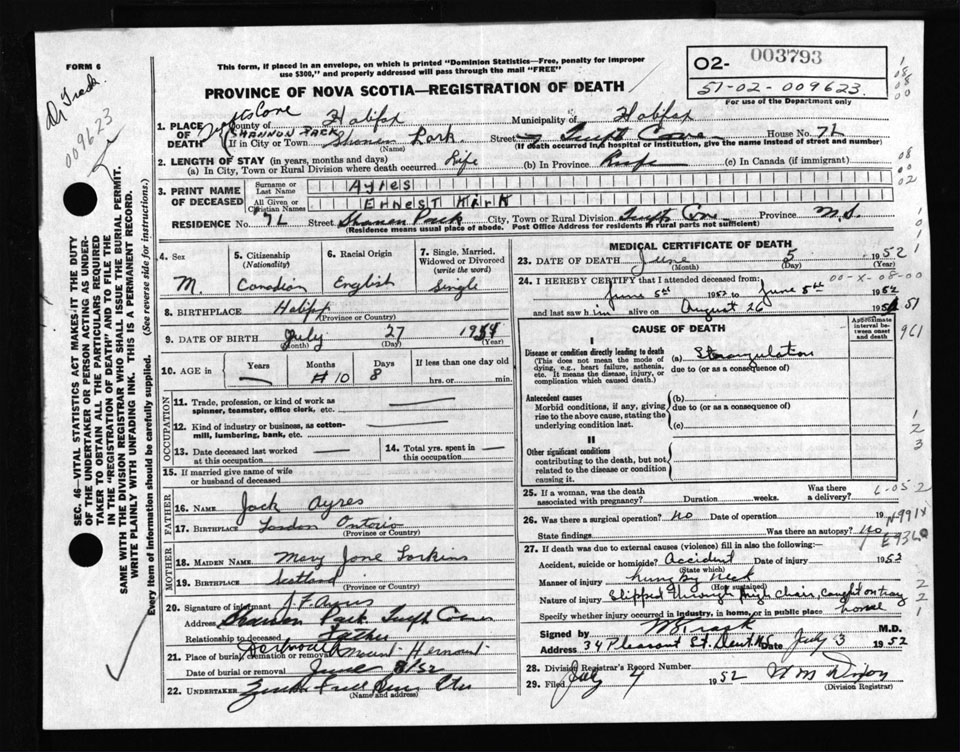 FORM 6
Dr Trask.
009623
This form, if placed in an envelope, on which is printed "Dominion Statistics—Free, penalty for improper
use $300," and properly addressed will pass through the mail "FREE"
O2- 003793
51-02-009623.
For use of the Department only
PROVINCE OF NOVA SCOTIA—REGISTRATION OF DEATH
1. PLACE OF DEATH County of Halifax Municipality of Halifax
SHANNON PARK
If in City or Town Shannon Park Street Tufts Cove House No. 7L
(Name) (If death occurred in a hospital or institution, give the name instead of street and number)
2. LENGTH OF STAY (in years, months and days)
(a) In City, Town or Rural Division where death occurred Life (b) In Province (c) In Canada (if immigrant)
3. PRINT NAME OF DECEASED Surname or Last Name AYRES
All Given or Christian Names ERNEST KIRK
RESIDENCE No. 7L Street Shannon Park City, Town or Rural Division Tufts Cove Province N.S.
(Residence means usual place of abode. Post Office Address for residents in rural parts not sufficient)
4. Sex M.
5. Citizenship (Nationality) Canadian
6. Racial Origin English
7. Single, Married, Widowed or Divorced (write the word) Single
8. BIRTHPLACE Halifax
(Province or Country)
9. DATE OF BIRTH July 27 19
(Month) (Day) (Year)
10. AGE in Years Months 10 Days 8 If less than one day old
hrs. or min.
OCCUPATION
11. Trade, profession, or kind of work as
spinner, teamster, office clerk, etc.
12. Kind of industry or business, as cotton-
mill, lumbering, bank, etc.
13. Date deceased last worked
at this occupation
14. Total yrs. spent in
this occupation
15. If married give name of wife
or husband of deceased
FATHER
16. NAME Jack Ayres
17. BIRTHPLACE London Ontario
(Province or Country)
MOTHER
18. MAIDEN NAME Mary Jane Larkins
19. BIRTHPLACE Scotland
(Province or Country)
20. Signature of informant J. F. Ayres
Address Shannon Park Tufts Cove
Relationship to deceased Father
21. Place of burial, cremation or removal Dartmouth Mount Hermount
Date of burial or removal June 8/52
22. UNDERTAKER
(Name and address)
MEDICAL CERTIFICATE OF DEATH
23. DATE OF DEATH June 5 1952
(Month) (Day) (Year)
24. I HEREBY CERTIFY that I attended deceased from: 00-X-08-00
June 5th 1952 to June 5th 1952
and last saw him alive on August 26 1951
CAUSE OF DEATH
Approximate interval between onset and death
I
Disease or condition directly leading to death (a) Strangulation
(This does not mean the mode of dying, e.g., heart failure, asthenia, etc. It means the disease, injury, or complication which caused death.)
due to (or as a consequence of)
Antecedent causes (b)
Morbid conditions, if any, giving rise to the above cause, stating the underlying condition last.
due to (or as a consequence of)
(c)
II
Other significant conditions
contributing to the death, but not related to the disease or condition causing it.
25. If a woman, was the death associated with pregnancy? Duration weeks. Was there a delivery?
26. Was there a surgical operation? No Date of operation 19
State findings Was there an autopsy? No
27. If death was due to external causes (violence) fill in also the following:—
Accident, suicide or homicide? Accident Date of injury 1952
(State which)
Manner of injury hung by neck
(How sustained)
Nature of injury Slipped through high chair, caught on tray
Specify whether injury occurred in industry, in home, or in public place home
Signed by Trask M.D.
Address 34 Pleasant St. Date July 3 1952
28. Division Registrar's Record Number
29. Filed July 4 1952 Dixon
(Division Registrar)
SEC. 46—VITAL STATISTICS ACT MAKES IT THE DUTY
OF THE UNDERTAKER OR PERSON ACTING AS UNDER-
TAKER TO OBTAIN ALL THE PARTICULARS REQUIRED
IN THE "REGISTRATION OF DEATH" AND TO FILE THE
SAME WITH THE DIVISION REGISTRAR WHO SHALL ISSUE THE BURIAL PERMIT.
WRITE PLAINLY WITH UNFADING INK. THIS IS A PERMANENT RECORD.
Every item of information should be carefully supplied. (See reverse side for instructions.)